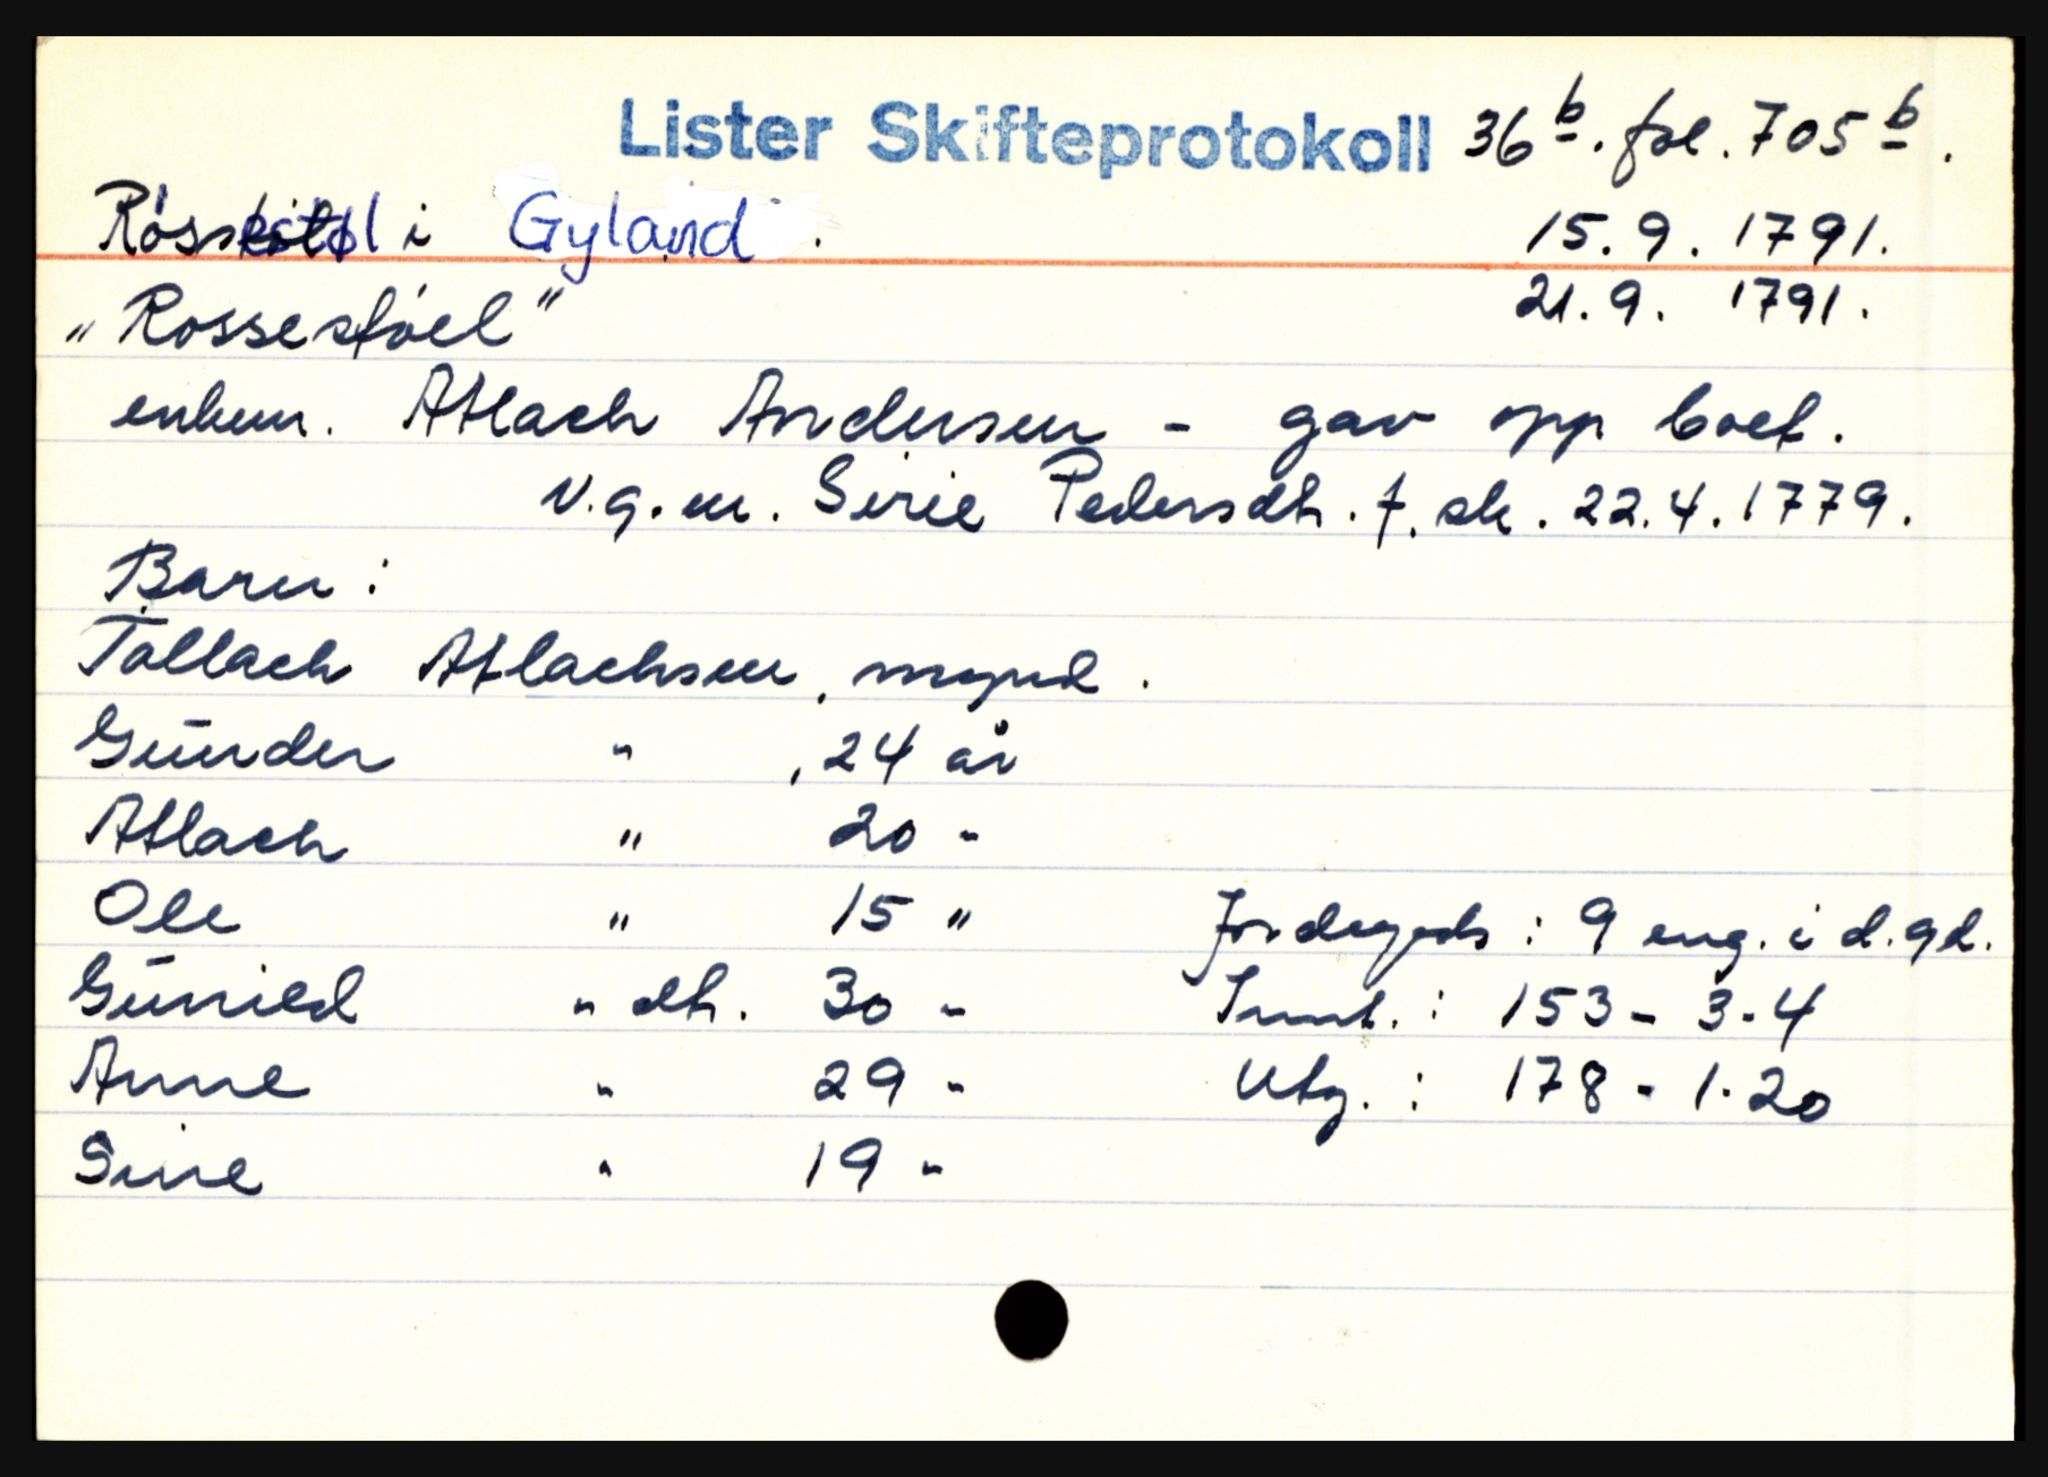 Lister Skifteprotokoll 36 b. fol. 705 b.
Røssestøl i Gyland. 15.9. 1791.
„Rossestøel" 21.9. 1791.
enkem. Atlach Andersen - gav opp boet.
v.g.m. Sirie Pedersdh. f. sk. 22.4.1779.
Barn:
Tollach Atlachsen, mynd.
Gūnder " , 24 år
Atlach " 20 "
Ole " 15 " Jordegods: 9 eng. i d. gd.
Gūnild " dh. 30 " Innt.: 153 - 3 - 4
Anne " 29 " Utg.: 178 - 1 - 20
Sirie " 19 "